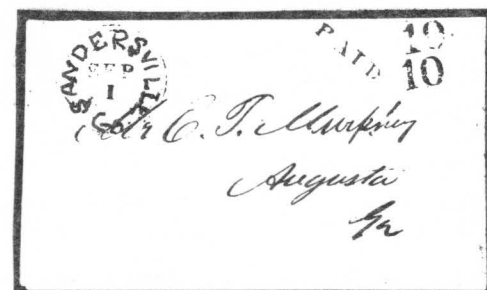 SANDERSVILLE Ga
SEP
1
PAID
10
10
C. T. Murphey
Augusta
Ga